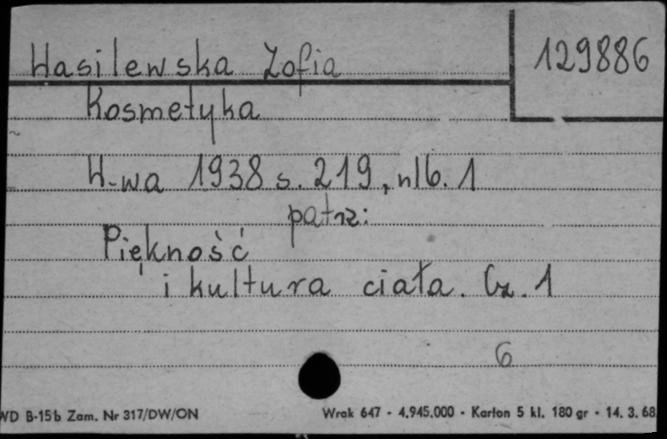 Wasilewska Zofia
129886
Kosmetyka
W-wa 1938 s. 219, nlb. 1
patrz:
Piękność
i kultura ciała. Cz. 1
6
WD B-15b Zam. Nr 317/DW/ON
Wrak 647 - 4.945.000 - Karton 5 kl. 180 gr - 14. 3. 68